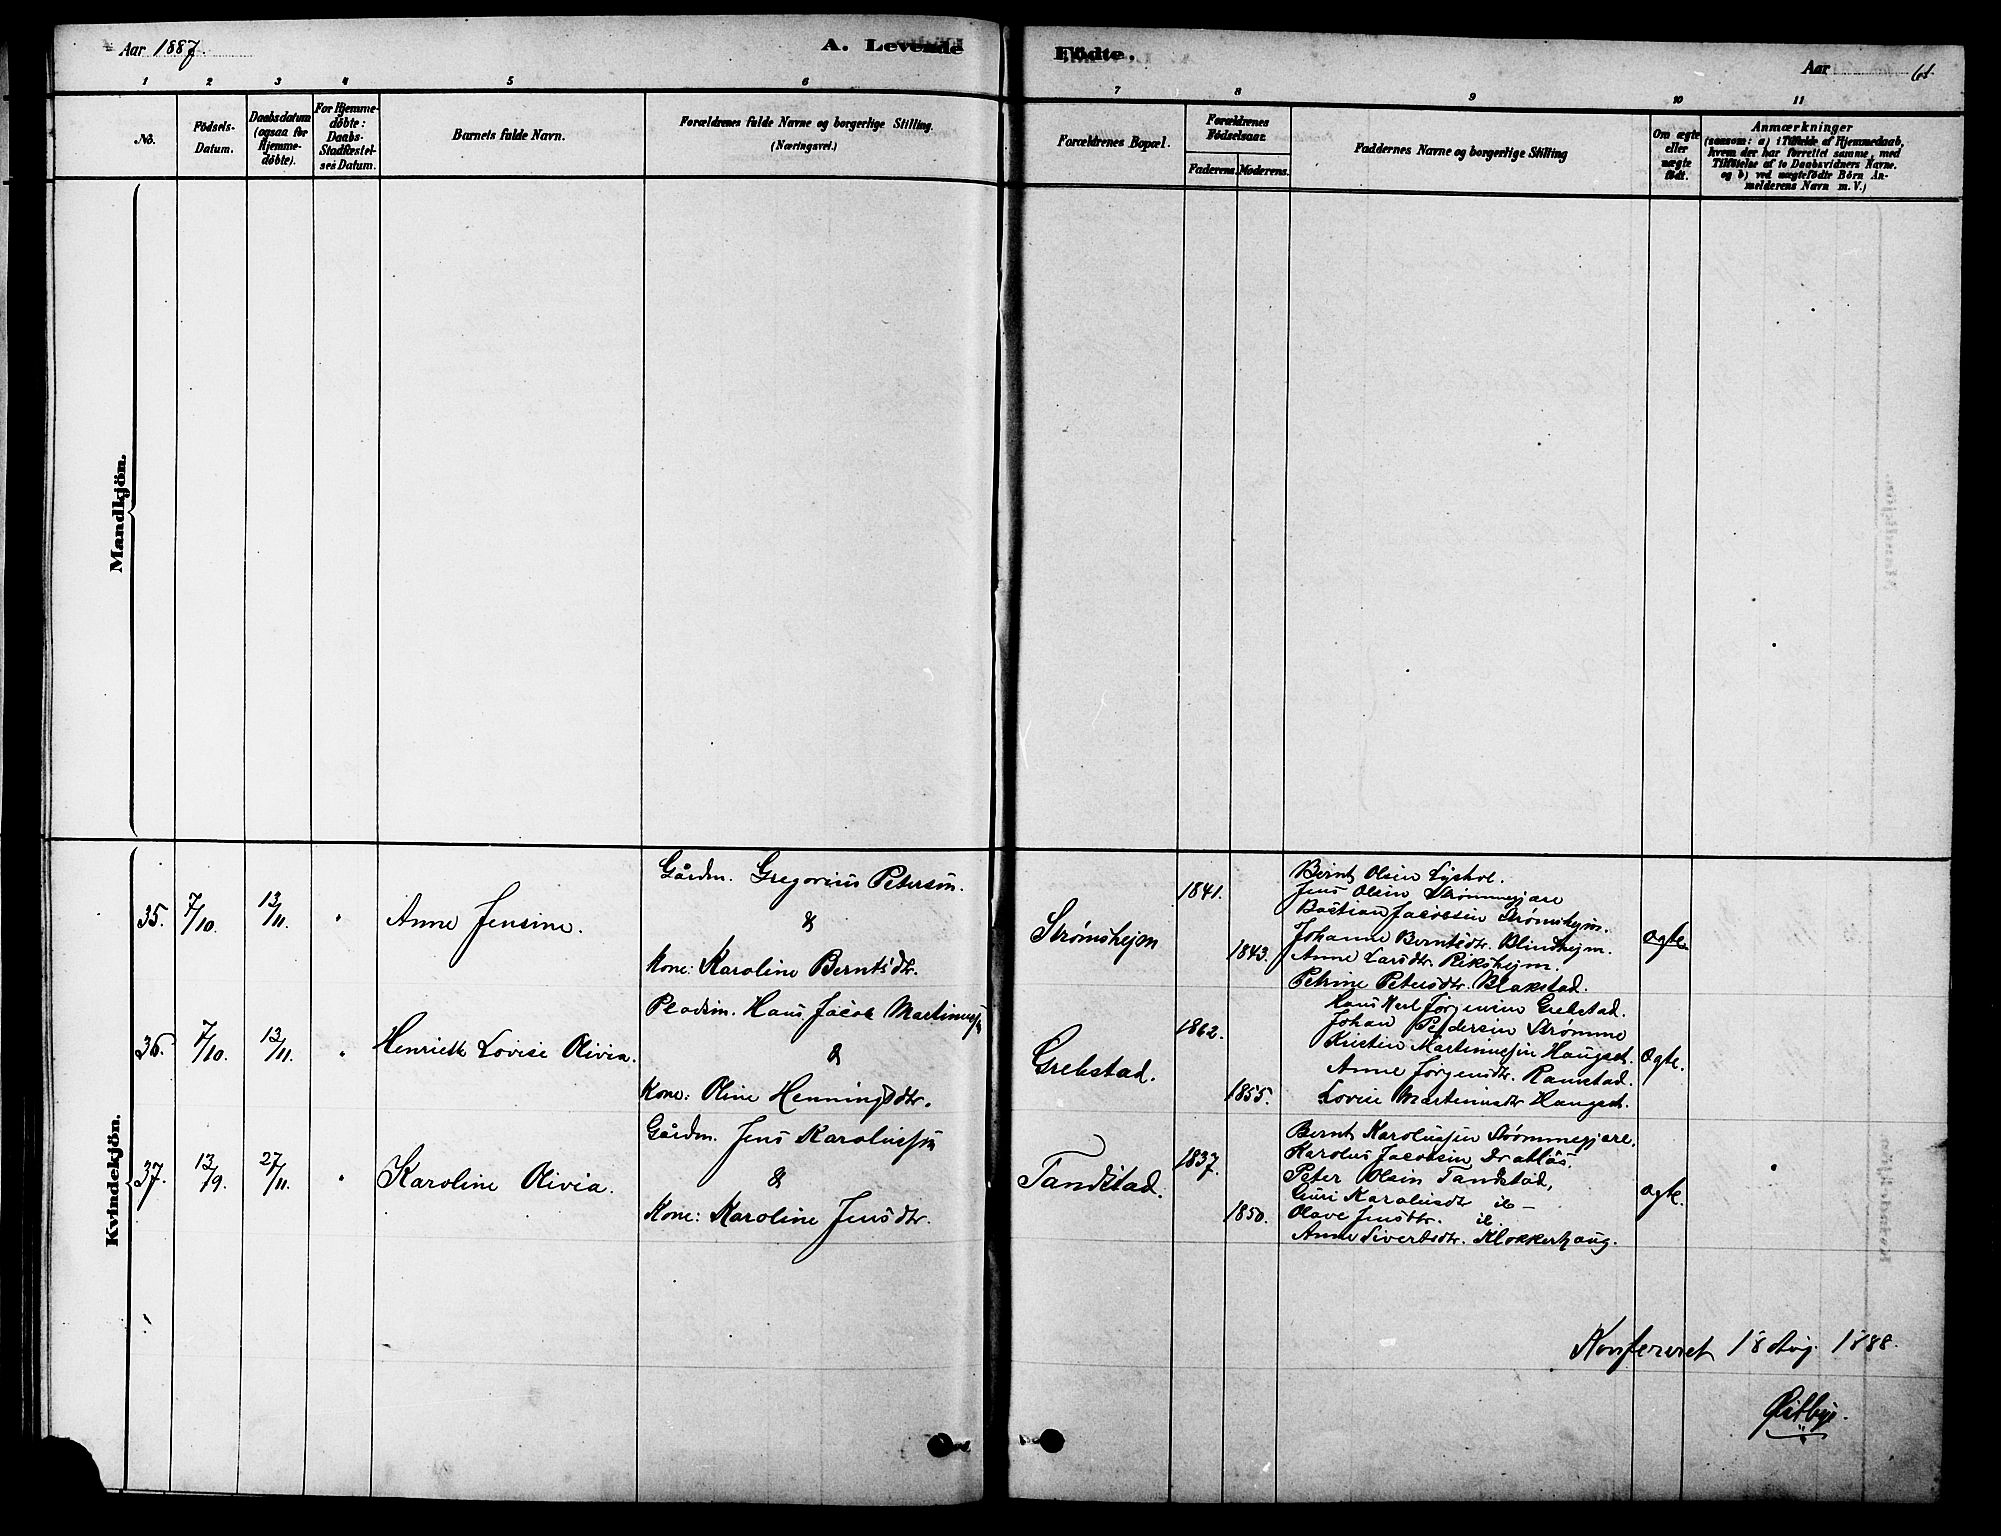 Aar 1887.
A. Levende
Födte.
Aar
61
1 2 3 4 5 6 7 8 9 10 11
No.
Födsels-Datum.
Daabsdatum (ogsaa for Hjemme-döbte).
For Hjemme-döbte: Daabs-Stadfæstel-ses Datum.
Barnets fulde Navn.
Forældrenes fulde Navne og borgerlige Stilling.
(Næringsvei.)
Forældrenes Bopæl.
Forældrenes Födselsaar.
Faderens. Moderens.
Faddernes Navne og borgerlige Stilling
Om ægte eller uægte födt.
Anmærkninger
(saasom: a) i Tilfælde af Hjemmedaab,
hvem der har forrettet samme, med
Tilföielse af to Daabsvidners Navne.
og b) ved uægtefödte Börn An-
melderens Navn m. V.)
Mandkjön.
Kvindekjön.
35. 7/10. 13/11. " Anne Jensine.
Gårdm. Gregorius Petersen.
&
Kone: Karoline Berntsdtr.
Strømshejm
1841.
1843.
Bernt Olsen Lyshol.
Jens Olsen Strømmegjære
Bastian Jacobsen Strømshejm.
Johanne Berntsdtr. Blindhejm.
Anne Larsdtr. Rikshejm.
Petrine Petersdtr. Blakstad.
Ogte.
36. 7/10. 13/11. " Henrikk Lovise Olivia.
Pladsm. Hans Jacob Martinuss
&
Kone: Oline Henningsdtr.
Grebstad.
1862.
1855.
Hans Karl Jørgensen Grebstad.
Johan Pedersen Strømme
Kristen Martinussen Haugset.
Anne Jørgensdtr. Ramstad.
Lovise Martinusdtr Haugset.
Ogte.
37. 13/9. 27/11. " Karoline Olivia.
Gårdm. Jens Karolussen
&
Kone: Karoline Jensdtr.
Tandstad.
1837.
1850.
Bernt Karolussen Strømmegjære.
Karolus Jacobsen Drabløs.
Peter Olsen Tandstad,
Guri Karolusdtr ib –
Olave Jensdtr. ib.
Anne Sivertsdtr. Klokkerhaug.
Ogte.
Konfereret 18 Aug. 1888.
Østbye.